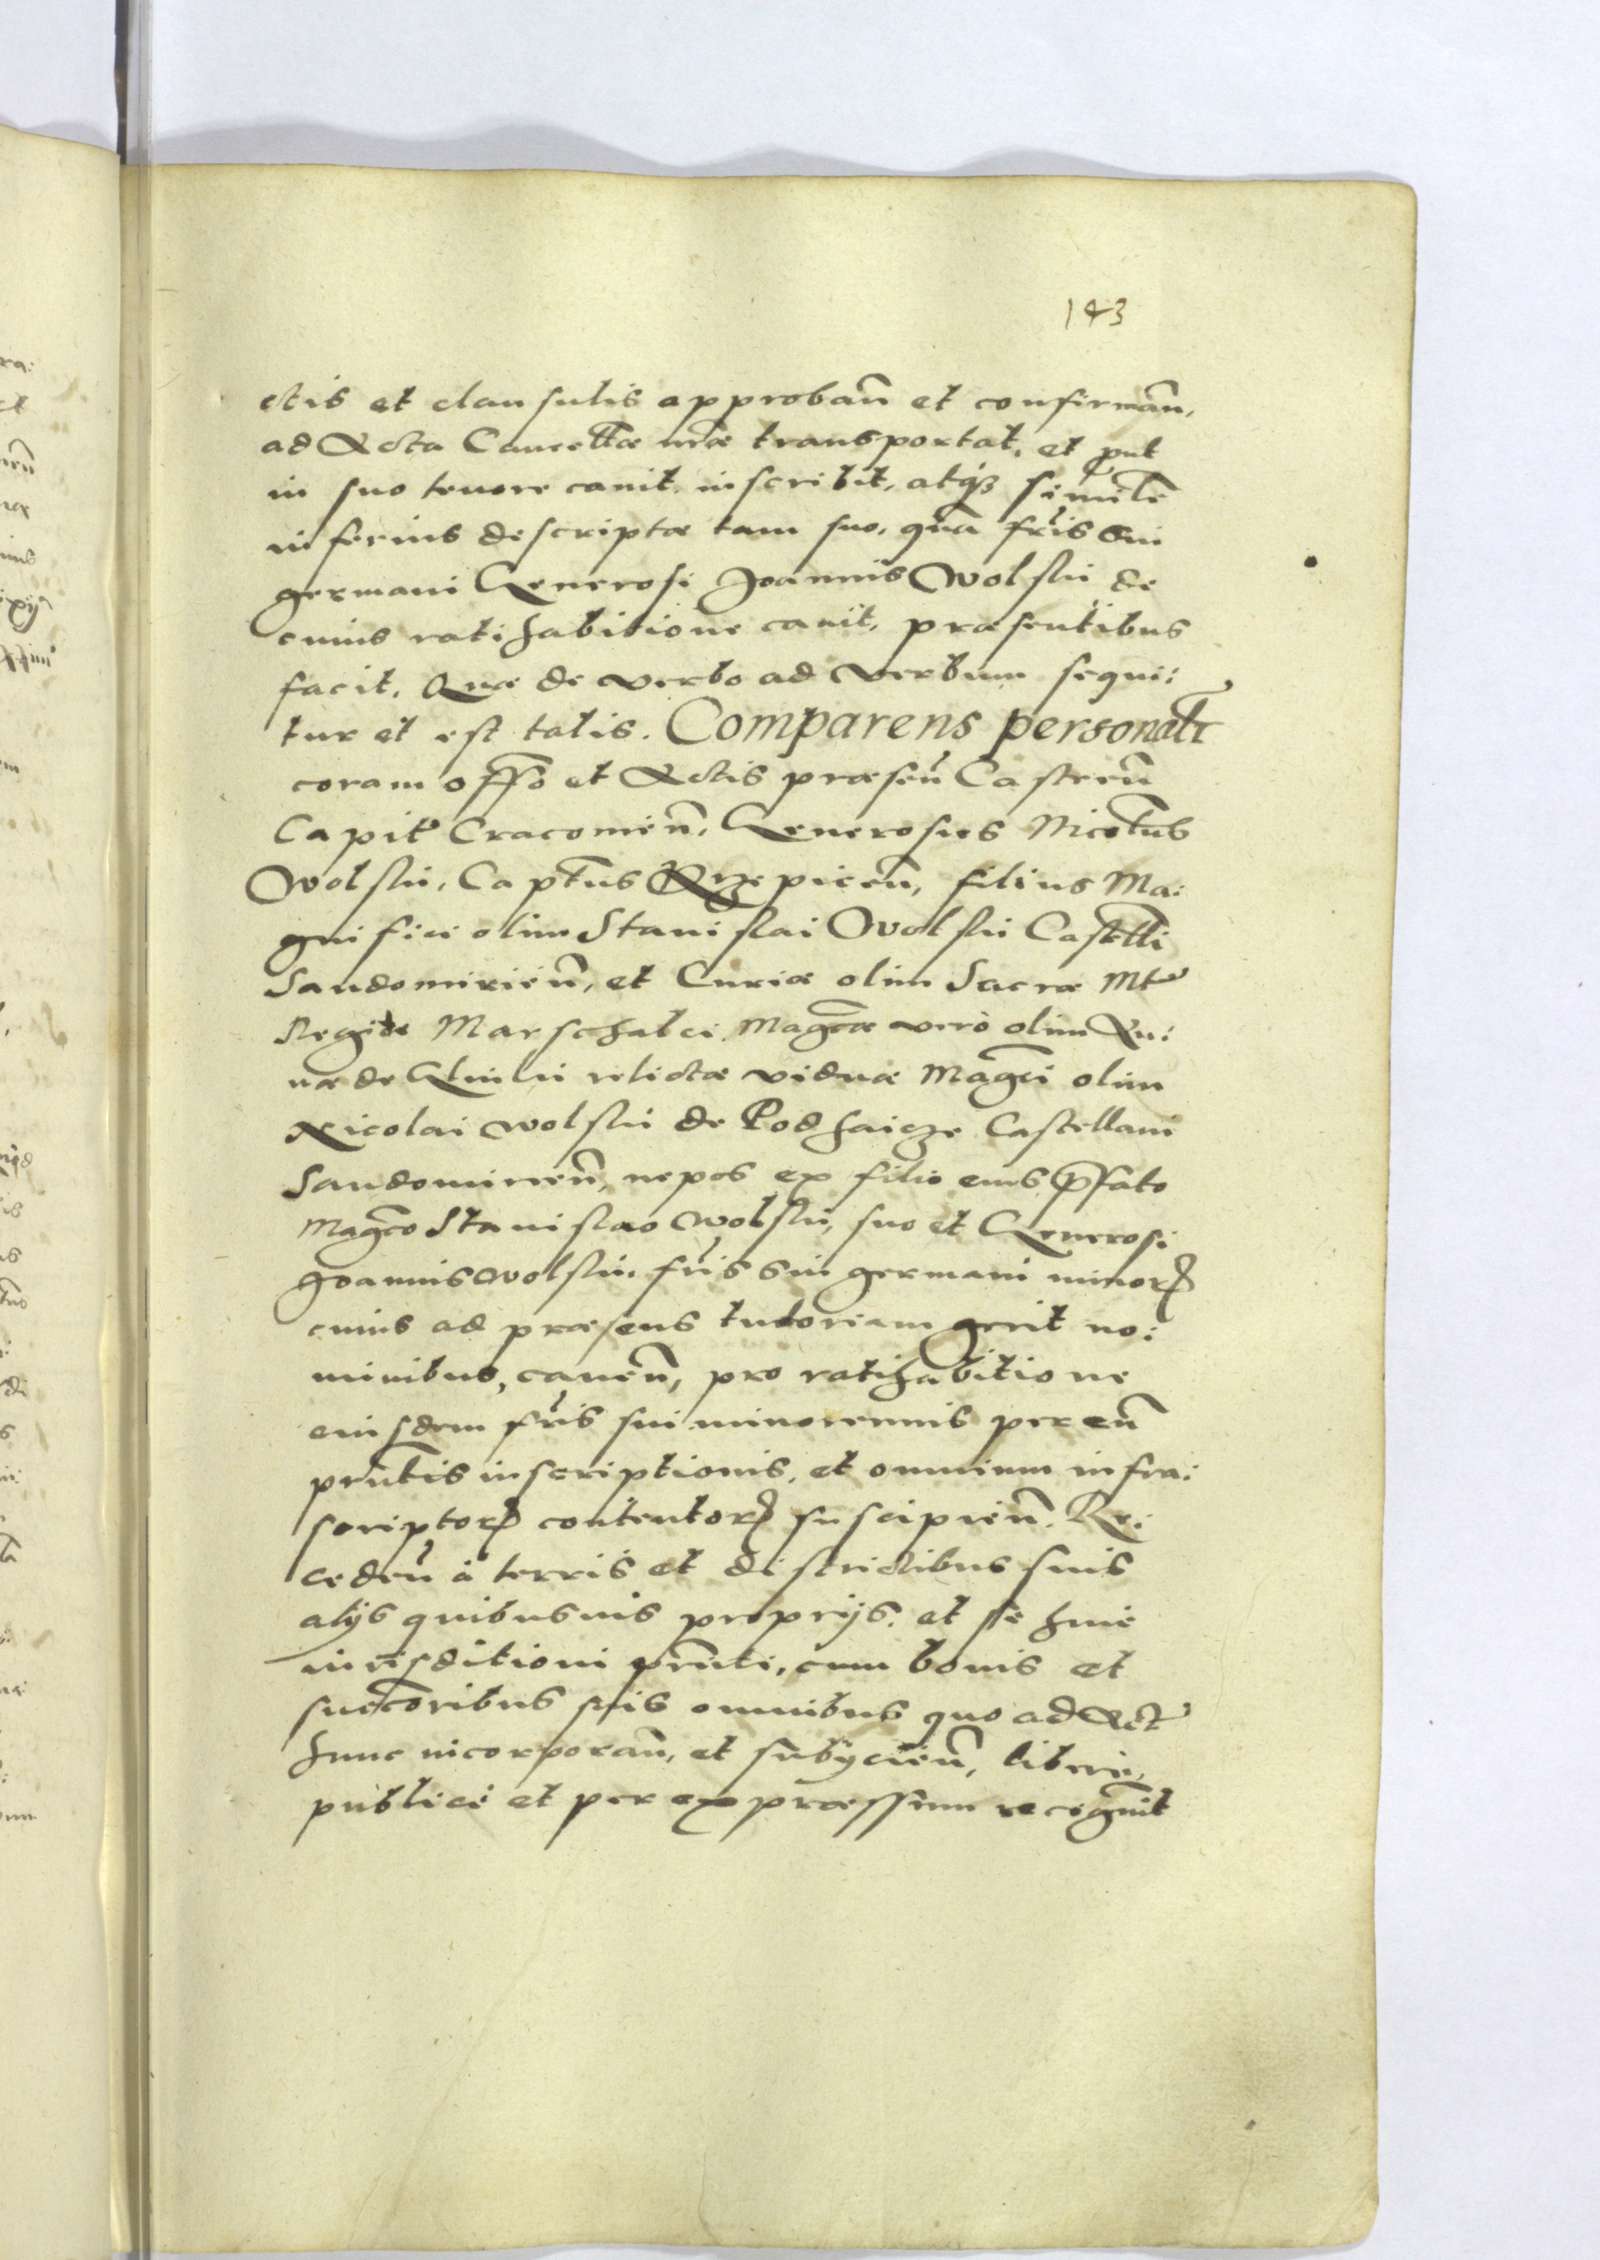 143
ctis et clausulis approbañ et confirmañ,
ad Acta Cancellæ nr̃æ transportat, et put
in suo tenore cauit, inscribit, atq3 similẽ
inferius descriptæ tam suo, quã fr̃is sui
germani Generosi Joannis Wolski de
cuius ratihabitione cauit, præsentibus
facit. Quæ de verbo ad verbum sequi:
tur et est talis. Comparens personalr̃
coram offõ et Actis præseñ Castreñ
Capit Cracouieñ, Generosus Nicolaus
Wolski, Captus Krzepiceñ, filius Ma:
gnifici olim Stanislai Wolski Castelli
Sandomirieñ, et Curiæ olim Sacræ Mt
Regiæ Marschalci, Magcæ verò olim An:
næ de relictæ viduæ Magci olim
Nicolai Wolski de Podhaicze Castellani
Sandomirieñ, nepos ex filio eius p̃fato
Magco Stanislao Wolski, suo et Generosi
Joannis Wolski, fr̃is sui germani minor
cuius ad præsens tutoriam gerit no:
minibus, caueñ, pro ratihabitione
eiusdem fr̃is sui minorennis per eũ
prñtis inscriptionis, et omnium infra:
scriptor contentor suscipieñ. Re:
cedeñ à terris et districtibus suis
alijs quibusuis proprijs, et se huic
iurisditioni prñti, cum bonis et
succõribus suis omnibus quo ad Act
hunc incorporañ, et subijcieñ, liberè,
publicè et per expræssum recognuit